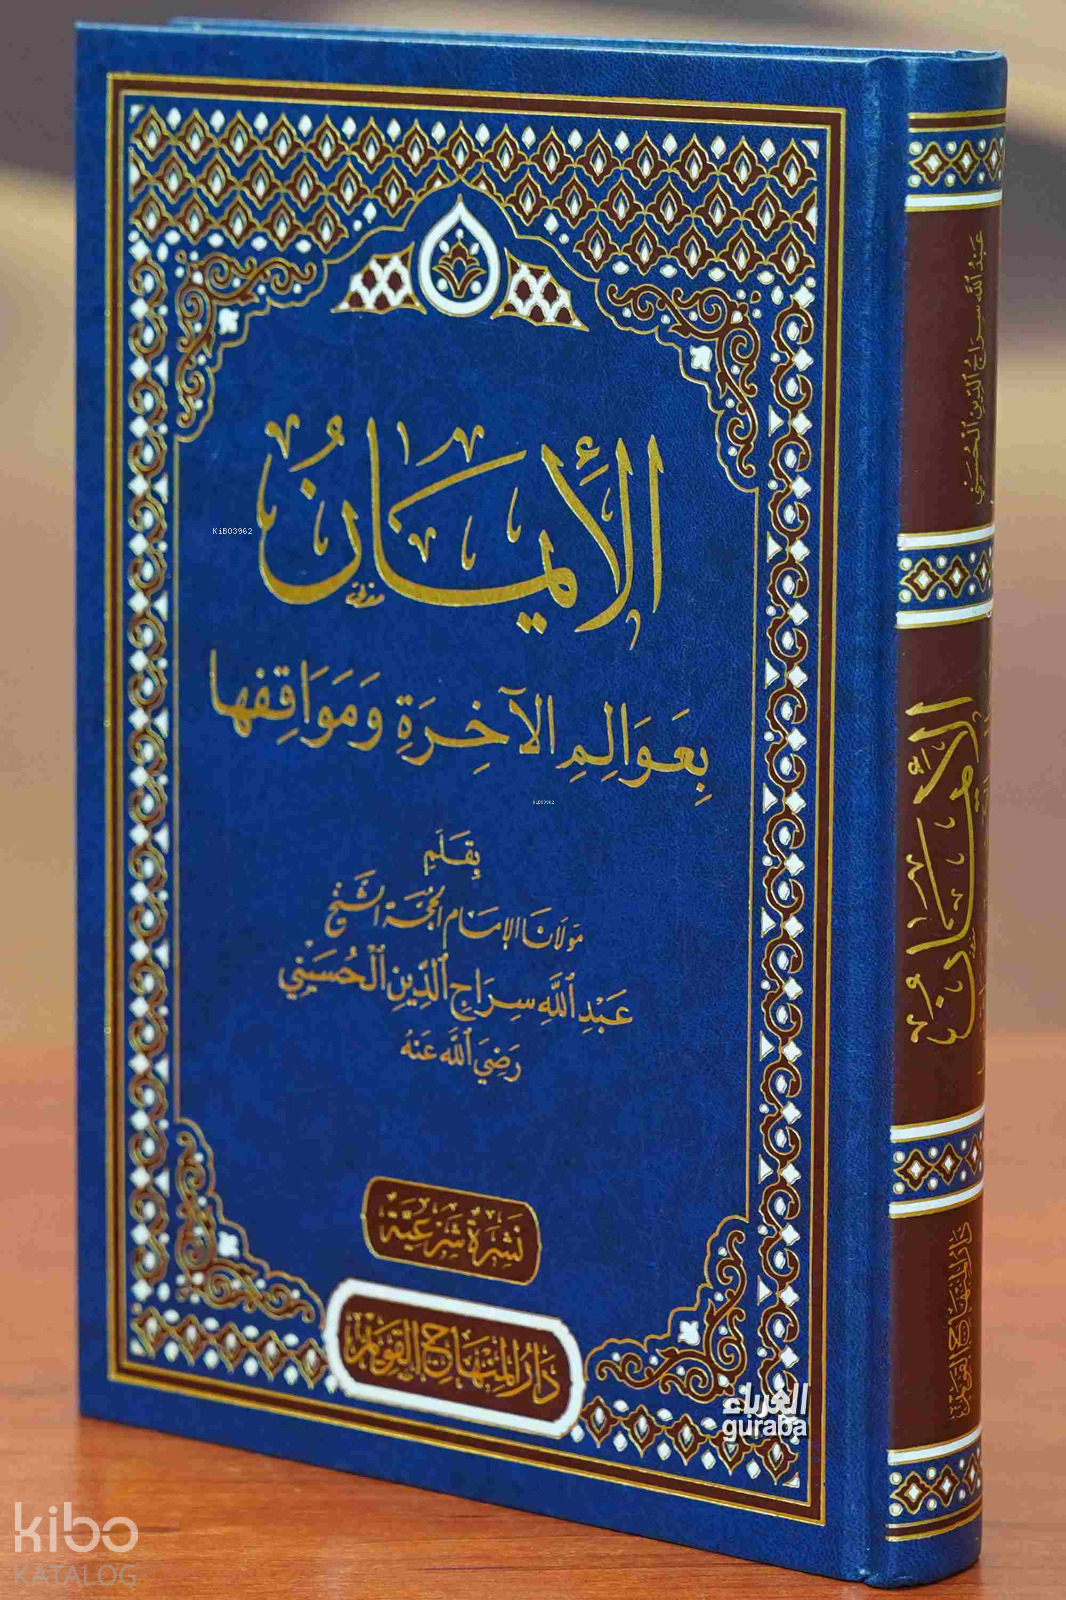 الإيمانُ
بِعَوَالِمِ الآخِرَةِ وَمَوَاقِفِها
بِقَلَمِ
مَولَانَا الإِمَامِ الحُجَّةِ الشَّيْخ
عَبْدِ ٱللَّهِ سِرَاجِ ٱلدِّينِ ٱلْحُسَيْنِي
رَضِيَ ٱللَّه عَنْهُ
نَشْرَةٌ شَرْعِيَّة
دَارُ المِنْهَاجِ القَوِيْمِ
عَبْدُ ٱللَّه سِرَاجُ ٱلدِّينِ ٱلْحُسَيْنِي
الإيمانُ
دَارُ المِنْهَاجِ القَوِيْمِ
KiBO3962
KiBO3962
الغرباء
guraba
kibo
KATALOG